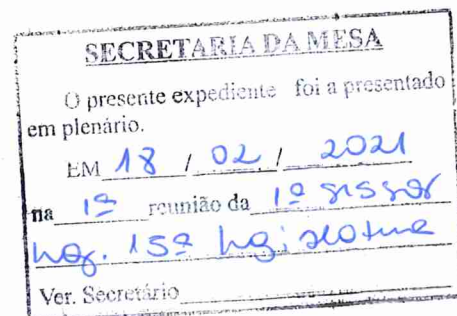 SECRETARIA DA MESA
O presente expediente foi a presentado
em plenário.
EM 18 / 02 / 2021
na 1ª reunião da 1ª sessão
Leg. 15ª Legislatura
Ver. Secretário